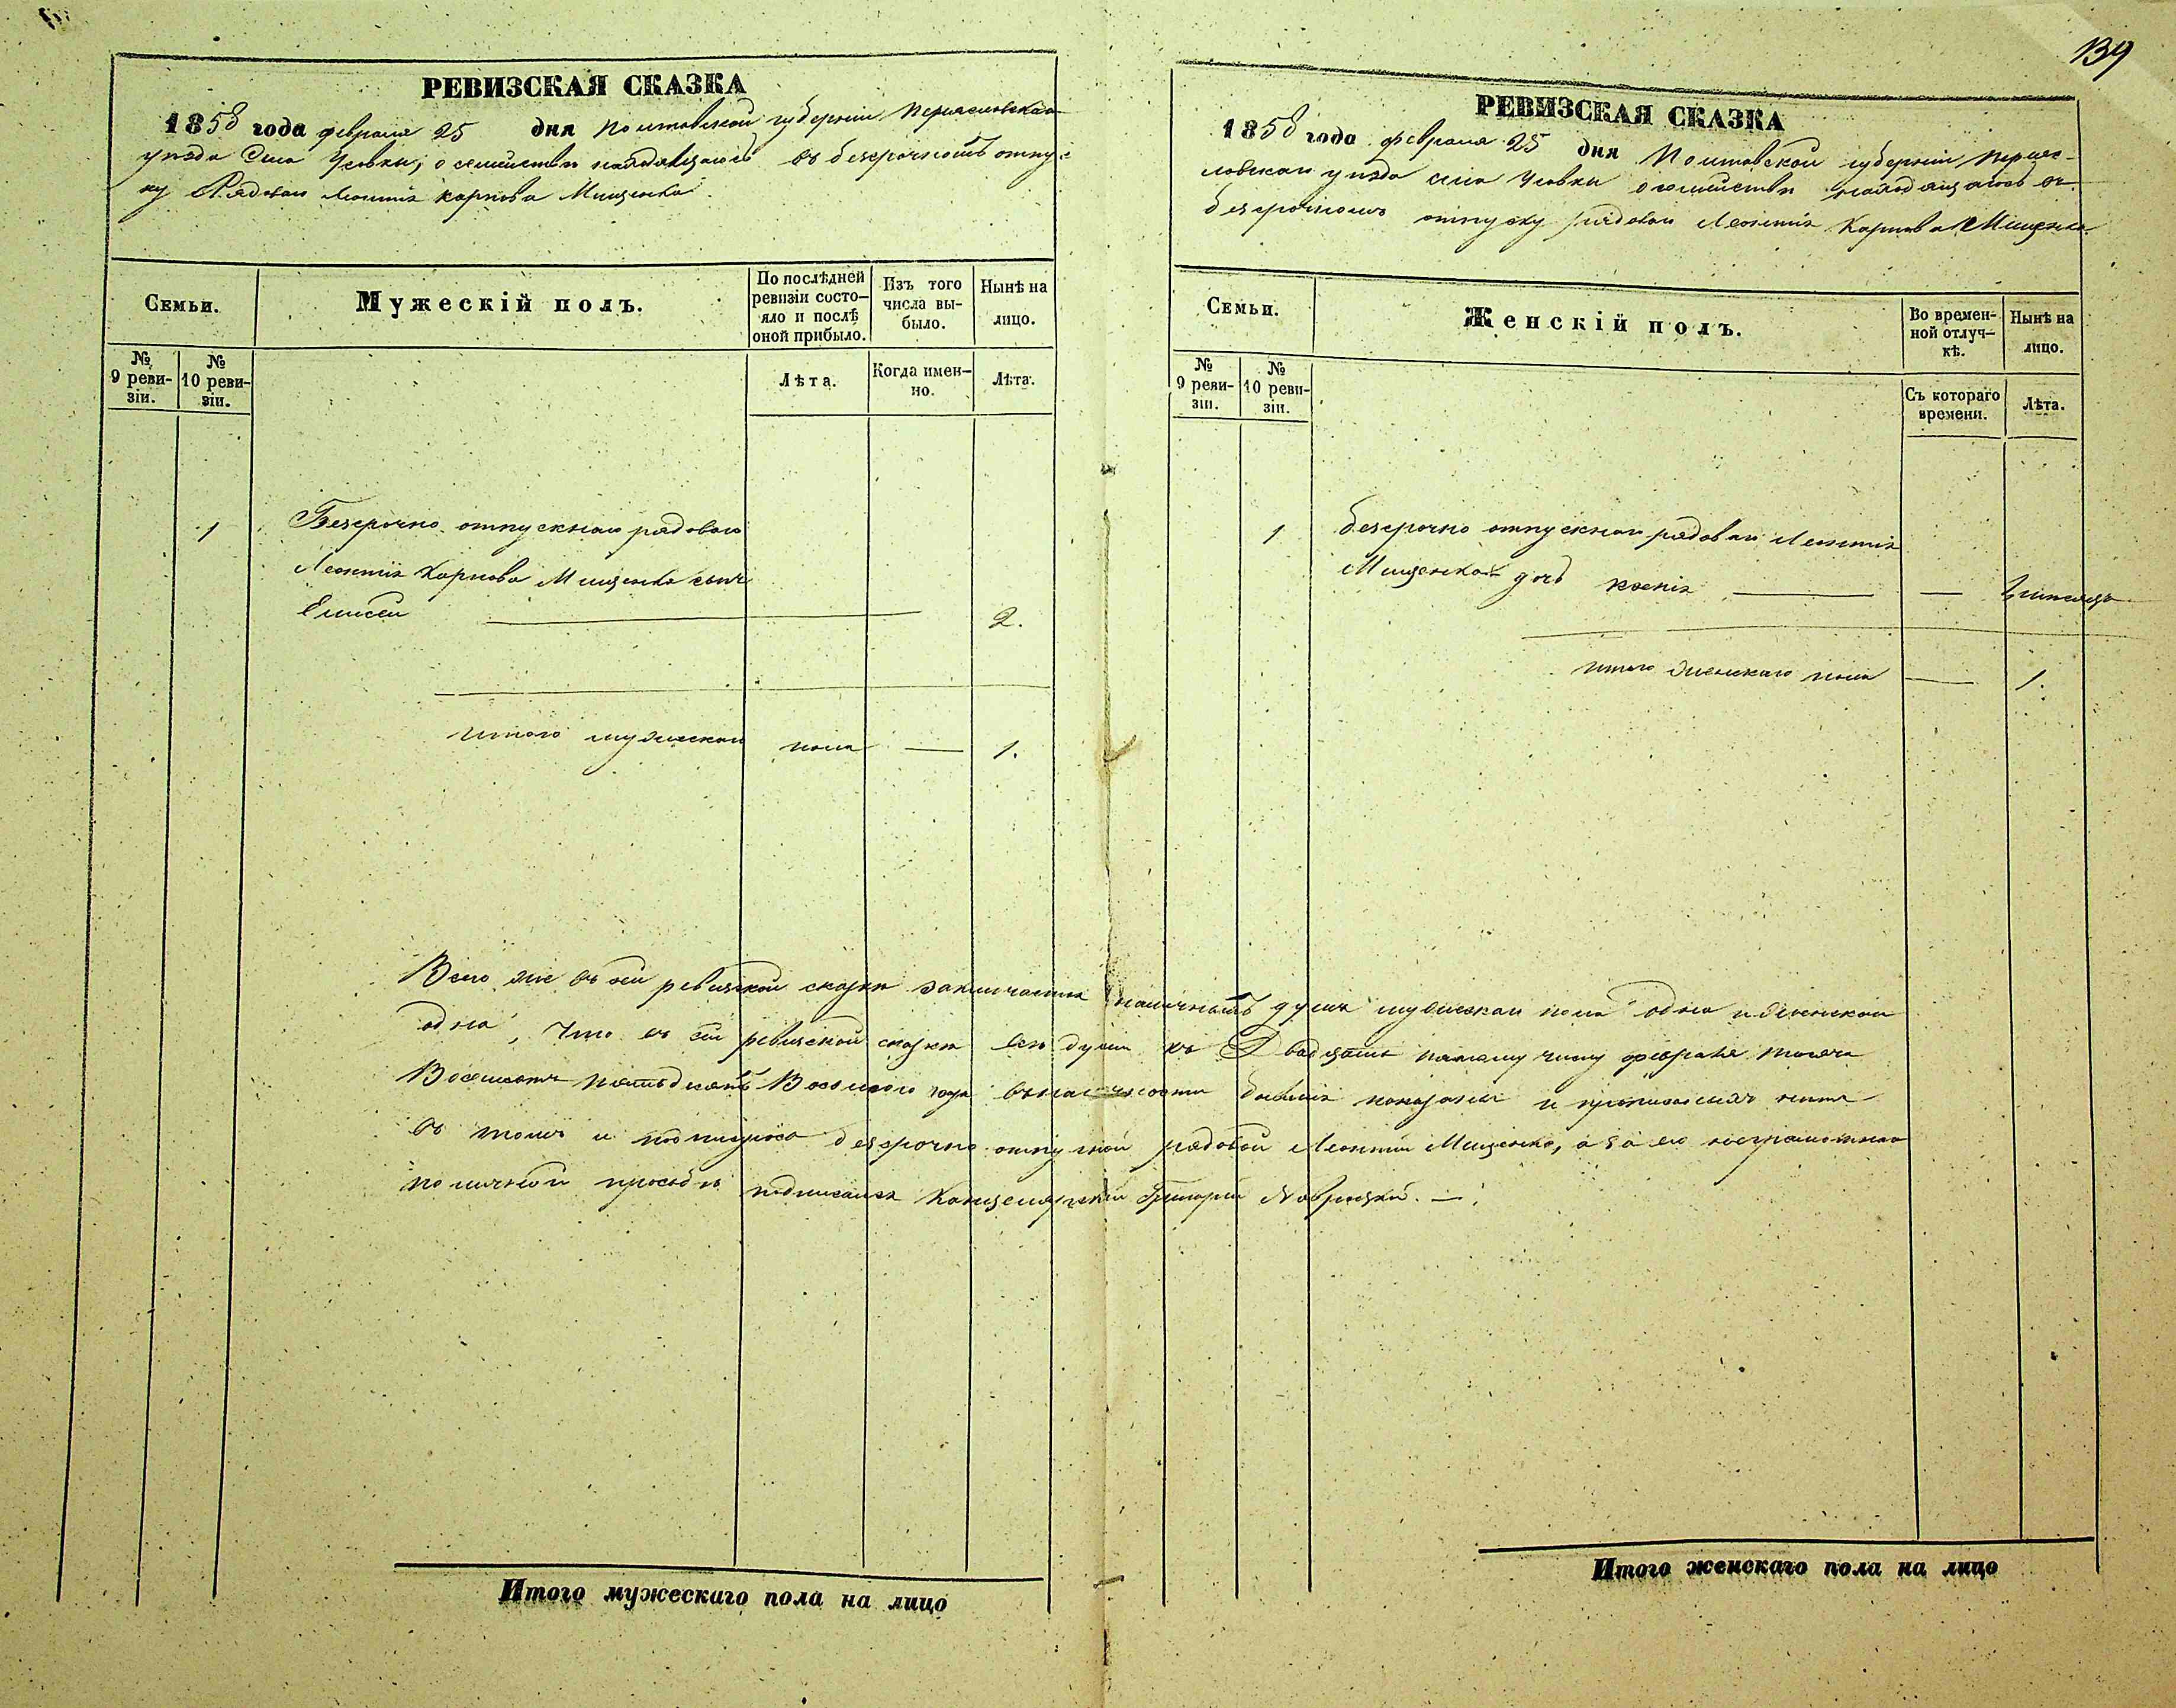 139
РЕВИЗСКАЯ СКАЗКА
1858 года февраля 25 дня Полтавской губерніи Переясловскаго
уѣзда Села Усовки, о семействѣ находящагося въ безсрочномъ отпу-
ску Рядоваго Леонтія Карпова Мищенка
Семьи.
Мужескій полъ.
По послѣдней ревизіи состо-яло и послѣ оной прибыло.
Изъ того числа вы-было.
Нынѣ на лицо.
№ 9 реви-зіи.
№ 10 реви-зіи.
Лѣта.
Когда имен-но.
Лѣта.
1 Безсрочно отпускнаго рядоваго
Леонтія Карпова Мищенка сынъ
Елисей — 2.
Итого мужескаго пола — 1.
РЕВИЗСКАЯ СКАЗКА
1858 года февраля 25 дня Полтавской губерніи Переяс-
ловскаго уѣзда села Усовки о семействѣ находящагося въ
безсрочномъ отпуску рядоваго Леонтія Карпова Мищенка
Семьи.
Женскій полъ.
Во времен-ной отлуч-кѣ.
Нынѣ на лицо.
№ 9 реви-зіи.
№ 10 реви-зіи.
Съ котораго времени.
Лѣта.
1 безсрочно отпускнаго рядоваго Леонтія
Мищенка дочь Ксенія — —
итого женскаго пола — 1.
Всего же въ сей ревизской сказкѣ заключается наличныхъ душъ мужескаго пола одна и женскаго
одна, Что въ сей ревизской сказкѣ всѣ души къ Двадцать пятому числу февраля тысяча
Восемсотъ пятьдесятъ Восьмаго года въ наличности бывшія показаны и прописныхъ нѣтъ
въ томъ и подписуюсь безсрочно отпускной рядовой Леонтій Мищенко, а за его неграмотнаго
по личной просьбѣ подписался Канцелярскій Григорій
Итого мужескаго пола на лицо
Итого женскаго пола на лицо